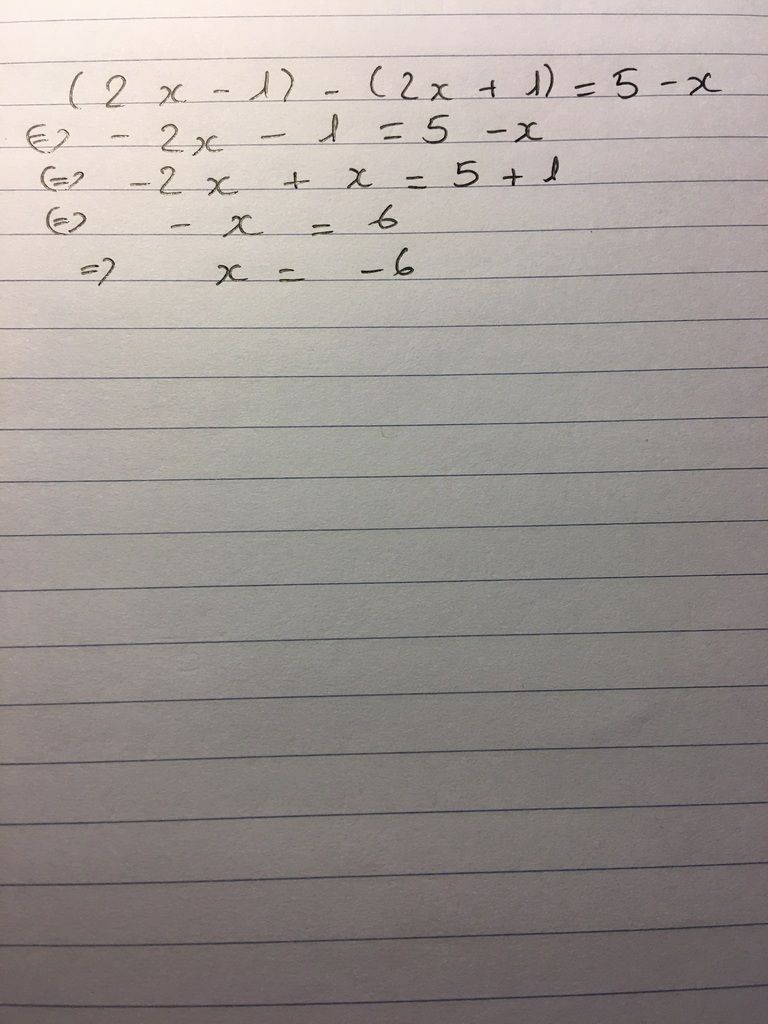 (2x - 1) - (2x + 1) = 5 - x
⇔ - 2x - 1 = 5 - x
⇔ - 2x + x = 5 + 1
⇔ - x = 6
⇒ x = - 6